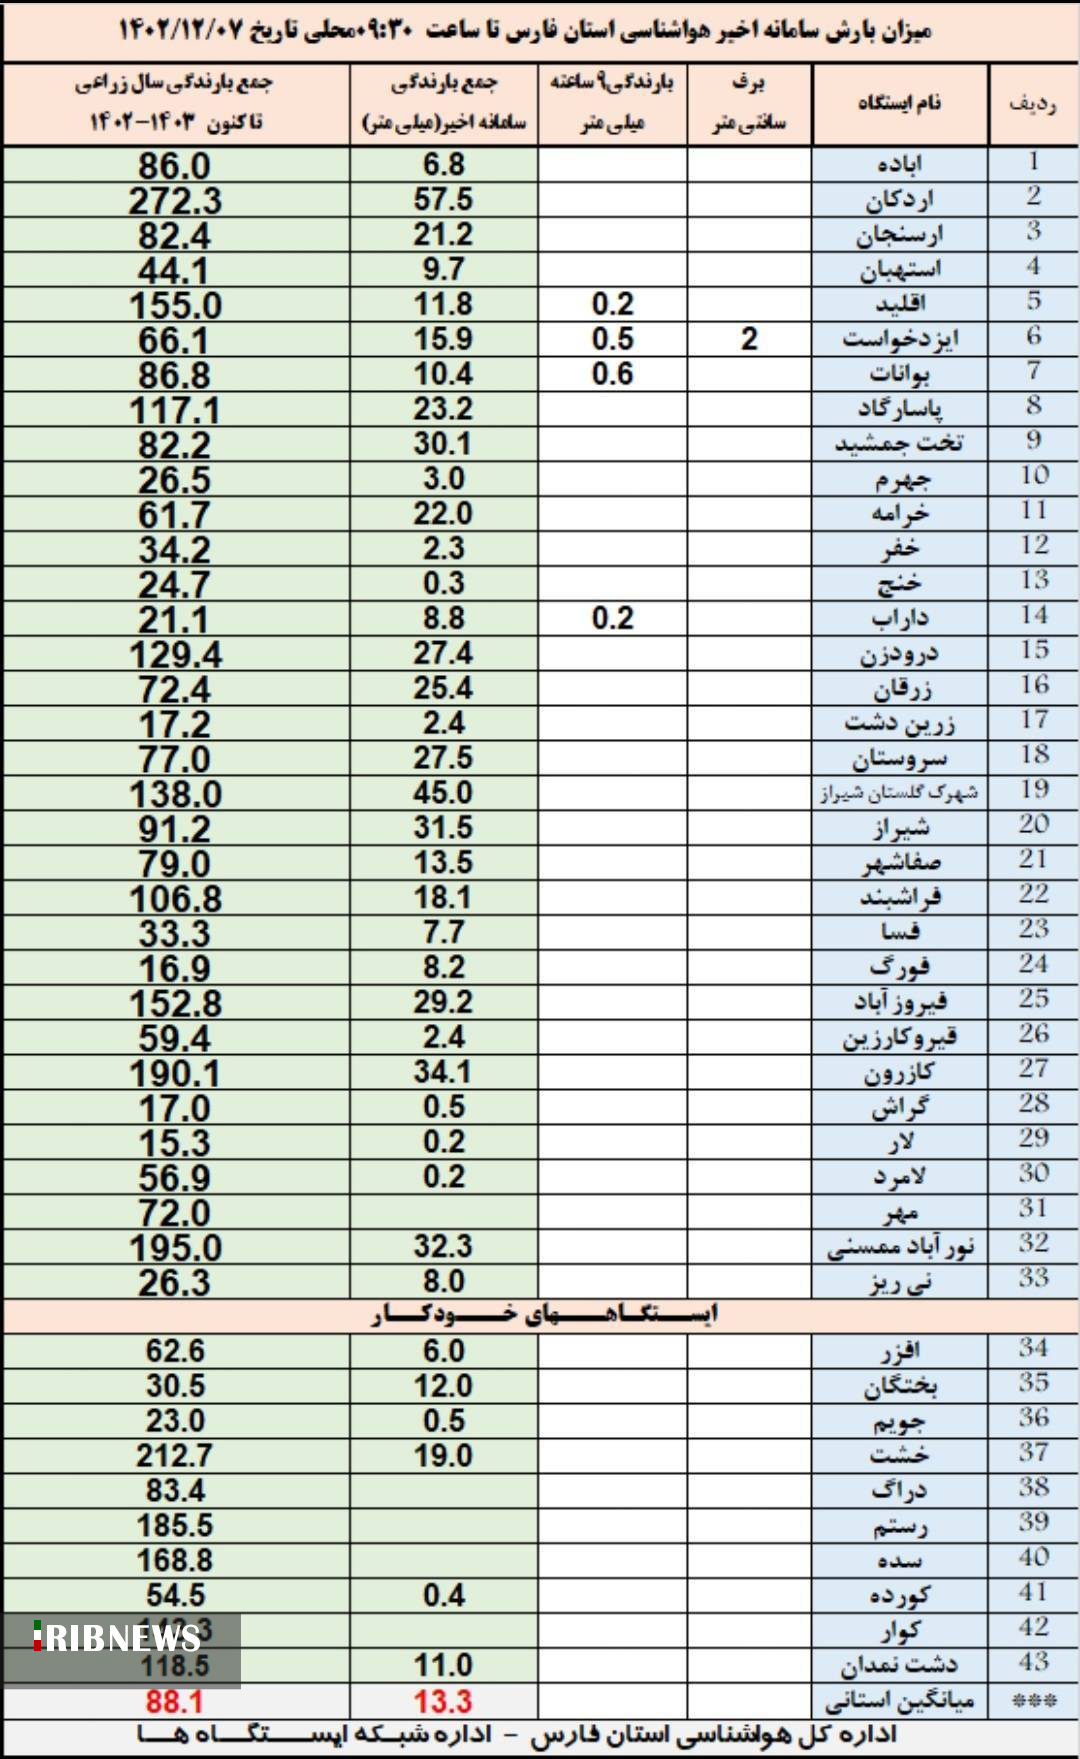 میزان بارش سامانه اخیر هواشناسی استان فارس تا ساعت ۰۹:۳۰محلی تاریخ ۱۴۰۲/۱۲/۰۷
ردیف نام ایستگاه برف سانتی متر بارندگی۹ ساعته میلی متر جمع بارندگی سامانه اخیر(میلی متر) جمع بارندگی سال زراعی تا کنون ۱۴۰۳-۱۴۰۲
1 اباده 6.8 86.0
2 اردکان 57.5 272.3
3 ارسنجان 21.2 82.4
4 استهبان 9.7 44.1
5 اقلید 0.2 11.8 155.0
6 ایزدخواست 2 0.5 15.9 66.1
7 بوانات 0.6 10.4 86.8
8 پاسارگاد 23.2 117.1
9 تخت جمشید 30.1 82.2
10 جهرم 3.0 26.5
11 خرامه 22.0 61.7
12 خفر 2.3 34.2
13 خنج 0.3 24.7
14 داراب 0.2 8.8 21.1
15 درودزن 27.4 129.4
16 زرقان 25.4 72.4
17 زرین دشت 2.4 17.2
18 سروستان 27.5 77.0
19 شهرک گلستان شیراز 45.0 138.0
20 شیراز 31.5 91.2
21 صفاشهر 13.5 79.0
22 فراشبند 18.1 106.8
23 فسا 7.7 33.3
24 فورگ 8.2 16.9
25 فیروزآباد 29.2 152.8
26 قیروکارزین 2.4 59.4
27 کازرون 34.1 190.1
28 گراش 0.5 17.0
29 لار 0.2 15.3
30 لامرد 0.2 56.9
31 مهر 72.0
32 نورآباد ممسنی 32.3 195.0
33 نی ریز 8.0 26.3
ایستگاههای خودکار
34 افزر 6.0 62.6
35 بختگان 12.0 30.5
36 جویم 0.5 23.0
37 خشت 19.0 212.7
38 دراگ 83.4
39 رستم 185.5
40 سده 168.8
41 کورده 0.4 54.5
42 کوار
43 دشت نمدان 11.0 118.5
*** میانگین استانی 13.3 88.1
اداره کل هواشناسی استان فارس - اداره شبکه ایستگاه ها
IRIBNEWS